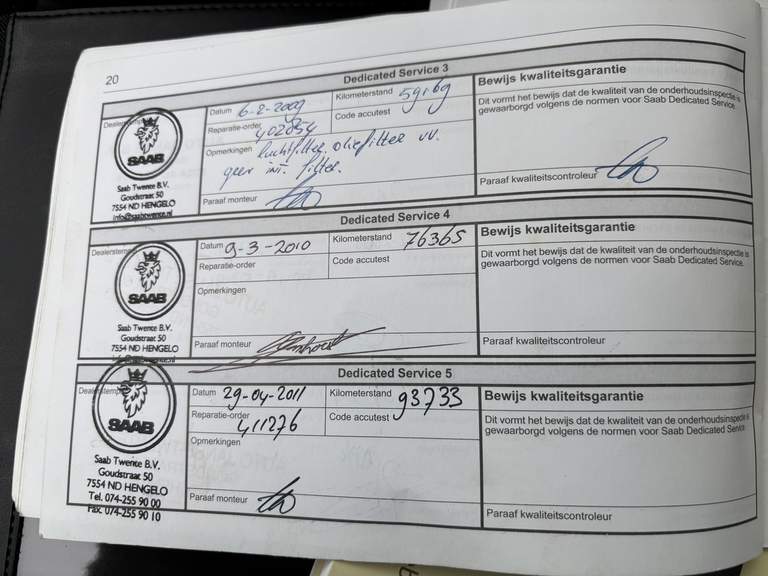 20
Dedicated Service 3
Dealerstempel
SAAB
Saab Twente B.V.
Goudstraat 50
7554 ND HENGELO
info@saabtwente.nl
Datum 6-2-2009
Kilometerstand 59169
Reparatie-order 402854
Code accutest
Opmerkingen luchtfilter. oliefilter vv.
geen int. filter.
Paraaf monteur
Bewijs kwaliteitsgarantie
Dit vormt het bewijs dat de kwaliteit van de onderhoudsinspectie is
gewaarborgd volgens de normen voor Saab Dedicated Service.
Paraaf kwaliteitscontroleur
Dedicated Service 4
Dealerstempel
SAAB
Saab Twente B.V.
Goudstraat 50
7554 ND HENGELO
Datum 9-3-2010
Kilometerstand 76365
Reparatie-order
Code accutest
Opmerkingen
Paraaf monteur
Bewijs kwaliteitsgarantie
Dit vormt het bewijs dat de kwaliteit van de onderhoudsinspectie is
gewaarborgd volgens de normen voor Saab Dedicated Service.
Paraaf kwaliteitscontroleur
Dedicated Service 5
Dealerstempel
SAAB
Saab Twente B.V.
Goudstraat 50
7554 ND HENGELO
Tel. 074-255 90 00
Fax. 074-255 90 10
Datum 29-04-2011
Kilometerstand 93733
Reparatie-order 411276
Code accutest
Opmerkingen
Paraaf monteur
Bewijs kwaliteitsgarantie
Dit vormt het bewijs dat de kwaliteit van de onderhoudsinspectie is
gewaarborgd volgens de normen voor Saab Dedicated Service.
Paraaf kwaliteitscontroleur